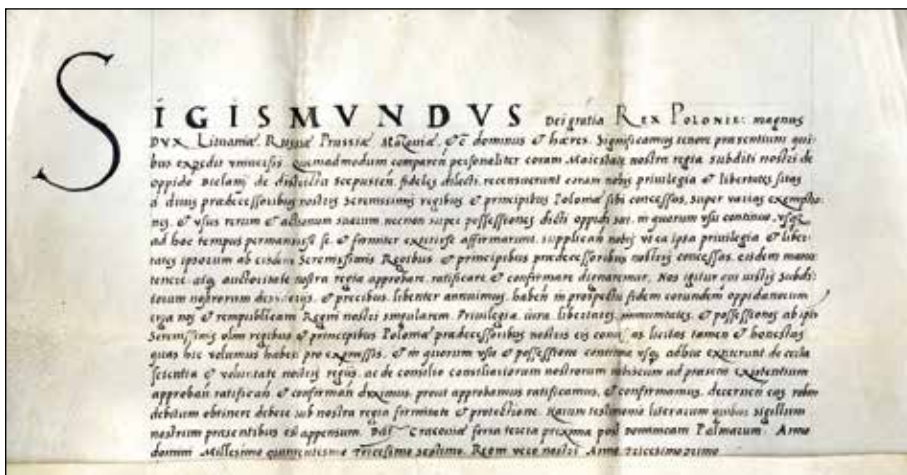 SIGISMVNDVS Dei gratia REX POLONIE: magnus
DVX Lituaniæ, Russiæ Prussiæ Mazouiæ, &c dominus & hæres. Significamus tenore præsentium qui-
bus expedit vniuersis quemadmodum comparen personaliter coram Maiestate nostra regia subditi nostri de
oppido de districtu Scepusien, fideles dilecti, recensuerunt coram nobis priuilegia & libertates
a diuis prædecessoribus nostris Serenissimis regibus & principibus Poloniæ sibi concessas, super varias exemptio-
nes, & vsus rerum & actionum suarum necnon super possessiones dicti oppidi sui, in quorum vsu continuo, vsq
ad hoc tempus permansisse se, & firmiter extitisse affirmarunt, supplican nobis ipsa priuilegia & liber-
tates ipsorum ab eisdem Serenissimis Regibus & principibus prædecessoribus nostris concessas, eisdem manu-
tenere, auctoritate nostra regia approbare, ratificare & confirmare dignaremur, Nos igitur qui iustis subdi-
torum nostrorum & precibus libenter annuimus, haben in prospectu fidem eorundem oppidanorum
erga nos & rempublicam Regni nostri singularem, Priuilegia, iura, libertates, immunitates, & possessiones ab ipsis
Serenissimis olim regibus & principibus Poloniæ prædecessoribus nostris eis concessas licitas tamen & honestas
quas hic volumus haberi pro expressis, & in quorum vsu & possessione continua vsq adhuc extiterunt de certa
scientia & voluntate nostris regiis, ac de consilio consiliariorum nostrorum ad præsens existentium
approban, ratifican, & confirman duximus, prout approbamus ratificamus, & confirmamus, decernen eas robur
debitum obtinere debere sub nostra regia firmitate & protectione, Harum testimonio literarum quibus sigillum
nostrum præsentibus est appensum. Dat Cracouiæ feria tercia proxima post dominicam Palmarum. Anno
domini Millesimo quingentesimo Tricesimo septimo. Regni vero nostri Anno tricesimo primo